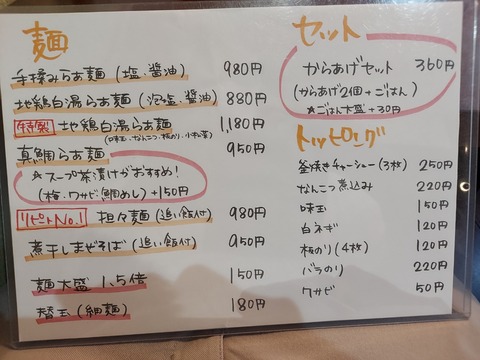 麺
手揉みらぁ麺(塩・醤油) 980円
地鶏白湯らぁ麺(泡塩・醤油) 880円
特製 地鶏白湯らぁ麺 1,180円
(味玉・なんこつ・板のり・小松菜)
真鯛らぁ麺 950円
☆スープ茶漬けがおすすめ!
(梅・ワサビ・鯛めし)+150円
リピートNo.1 担々麺(追い飯付) 980円
煮干しまぜそば(追い飯付) 950円
麺大盛 1.5倍 150円
替玉(細麺) 180円
セット
からあげセット 360円
(からあげ2個+ごはん)
☆ごはん大盛+30円
トッピング
釜焼きチャーシュー(3枚) 250円
なんこつ煮込み 220円
味玉 150円
白ネギ 120円
板のり(4枚) 120円
バラのり 220円
ワサビ 50円